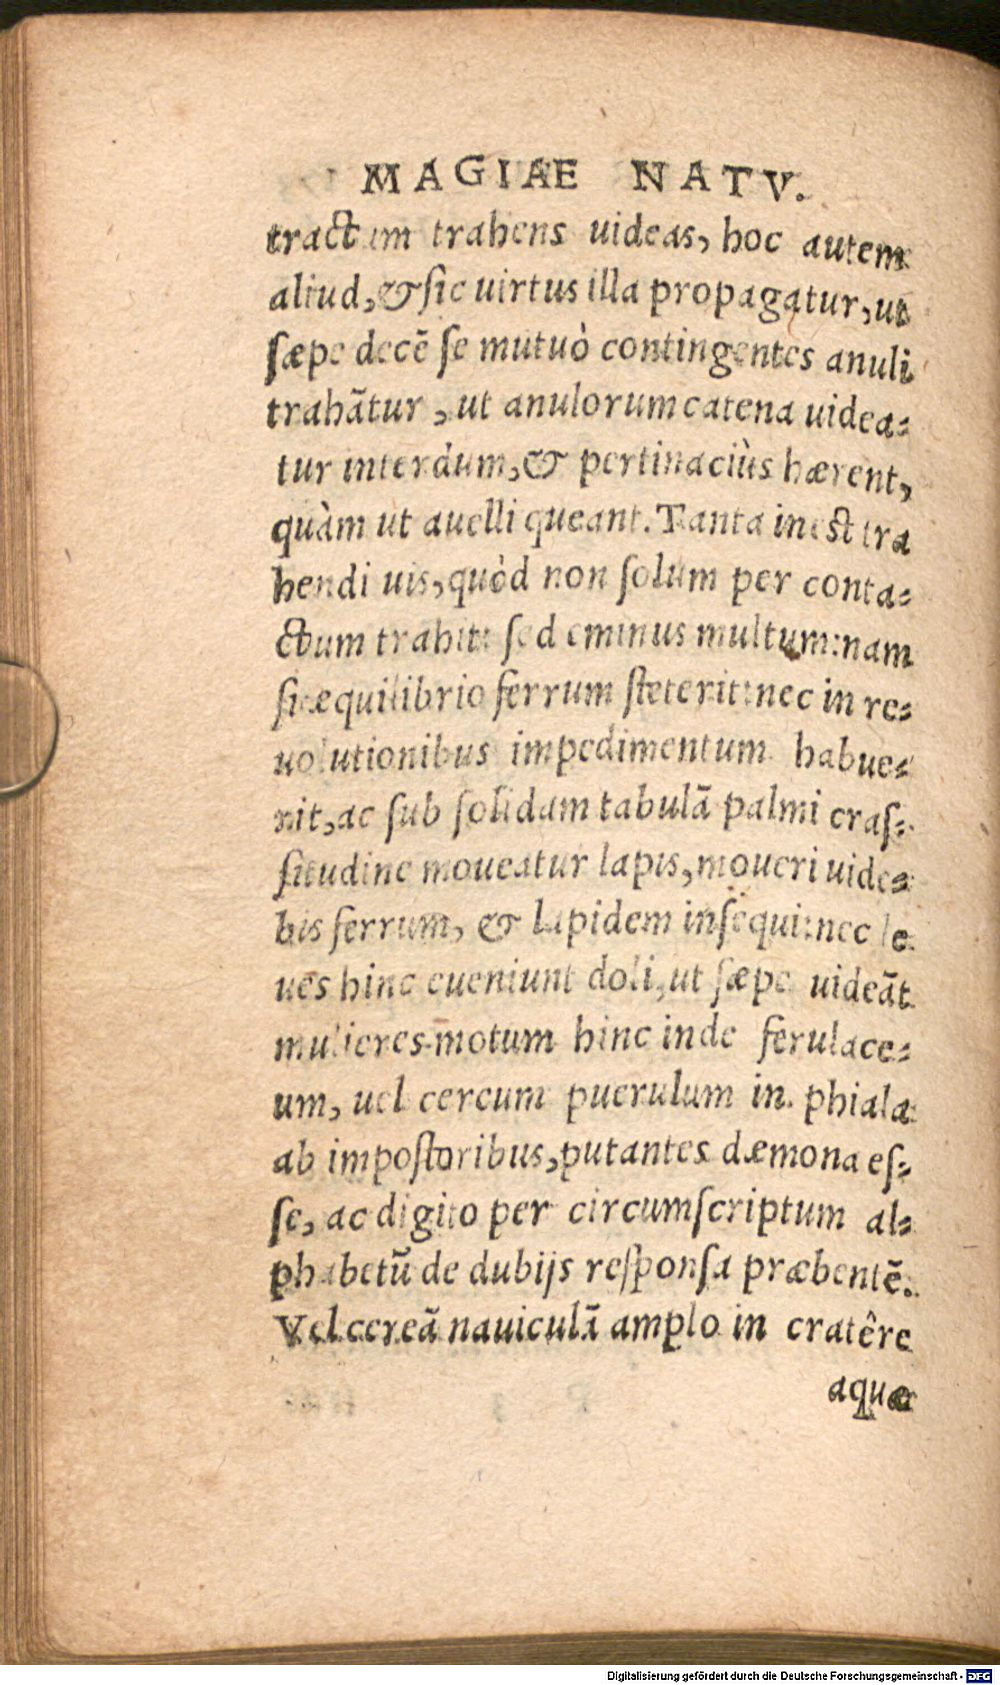 MAGIAE NATV.
tractum trahens uideas, hoc autem
aliud, & sic uirtus illa propagatur, ut
sæpe decē se mutuò contingentes anuli
trahātur, ut anulorum catena uidea-
tur interdum, & pertinaciùs hærent,
quàm ut auelli queant. Tanta inest tra
hendi uis, quòd non solum per conta-
ctum trahit: sed eminus multum: nam
si æquilibrio ferrum steterit: nec in re-
uolutionibus impedimentum habue-
rit, ac sub solidam tabulā palmi cras-
situdine moueatur lapis, moueri uide-
bis ferrum, & lapidem insequi: nec le
ues hinc eueniunt doli, ut sæpe uideāt
mulieres motum hinc inde ferulace-
um, uel cereum puerulum in phiala
ab impostoribus, putantes dæmona es-
se, ac digito per circumscriptum al-
phabetū de dubijs responsa præbentē.
Vel cereā nauiculā amplo in cratêre
aquæ
Digitalisierung gefördert durch die Deutsche Forschungsgemeinschaft - DFG